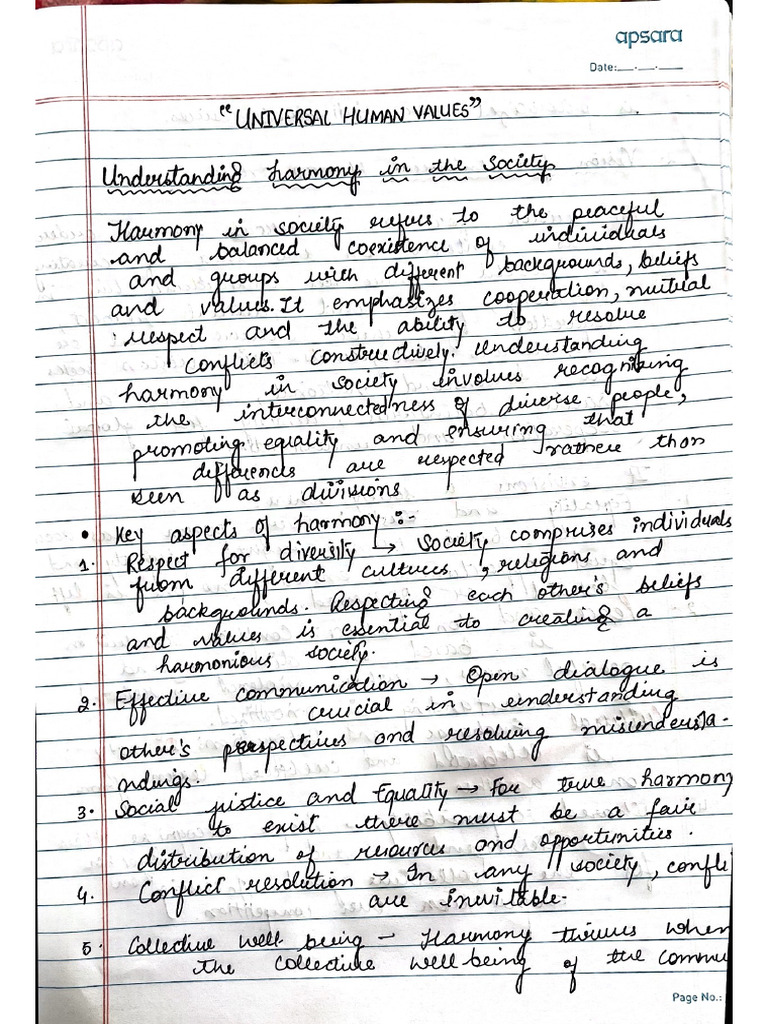 apsara
Date:__.__.__
"UNIVERSAL HUMAN VALUES"
Understanding harmony in the society
Harmony in society refers to the peaceful
and balanced coexistence of individuals
and groups with different backgrounds, beliefs
and values. It emphasizes cooperation, mutual
respect and the ability to resolve
conflicts constructively. Understanding
harmony in society involves recognizing
the interconnectedness of diverse people,
promoting equality and ensuring that
differences are respected rather than
seen as divisions
• Key aspects of harmony :-
1. Respect for diversity → Society comprises individuals
from different cultures, religions and
backgrounds. Respecting each other's beliefs
and values is essential to creating a
harmonious society.
2. Effective communication → Open dialogue is
crucial in understanding
other's perspectives and resolving misundersta-
ndings.
3. Social justice and Equality → For true harmony
to exist there must be a fair
distribution of resources and opportunities.
4. Conflict resolution → In any society, confli
are inevitable.
5. Collective well being - Harmony thrives when
the collective well being of the commu
Page No.: